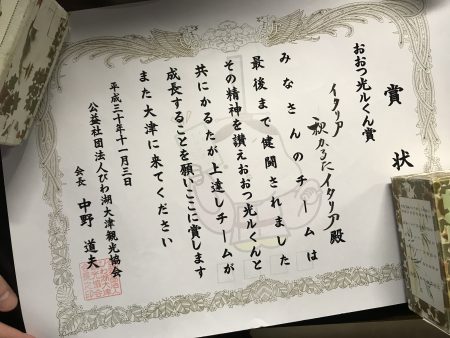 賞状
おおつ光ルくん賞
イタリア 歌かるたイタリア殿
みなさんのチームは
最後まで健闘されました
その精神を讃えおおつ光ルくんと
共にかるたが上達しチームが
成長することを願いここに賞します
また大津に来てください
平成三十年十一月三日
公益社団法人びわ湖大津観光協会
会長 中野 道夫